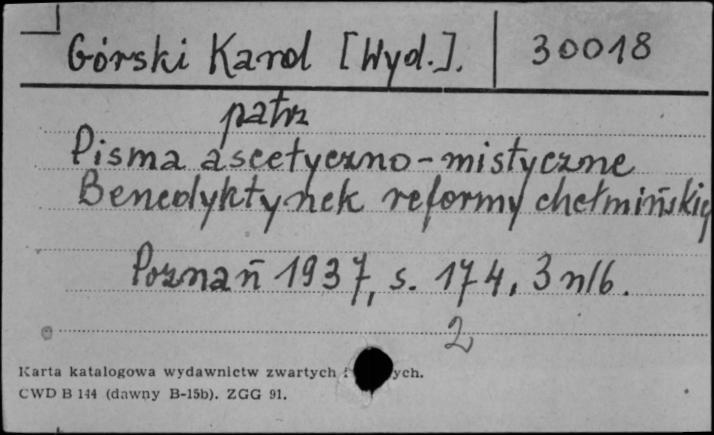 Górski Karol [Wyd.]. 30018
patrz
Pisma ascetyczno-mistyczne
Benedyktynek reformy chełmińskiej
Poznań 1937, s. 174, 3 nlb.
2
Karta katalogowa wydawnictw zwartych i ych.
CWD B 144 (dawny B-15b). ZGG 91.